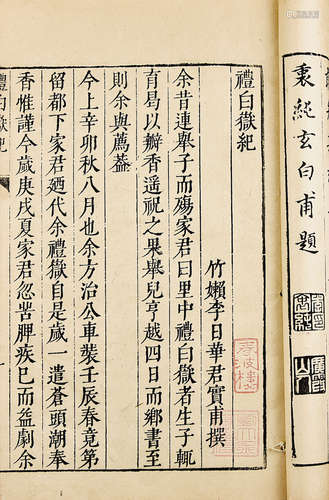 玄白甫題
禮白嶽紀
竹嬾李日華君實甫撰
余昔連舉子而殤家君曰里中禮白嶽者生子輒
育曷以瓣香遥祝之果舉兒亨越四日而鄉書至
則余與薦葢
今上辛卯秋八月也余方治公車裝壬辰春竟第
留都下家君廼代余禮嶽自是歲一遣蒼頭潮奉
香惟謹今歲庚戌夏家君忽苦脾疾巳而益劇余
禮白嶽紀